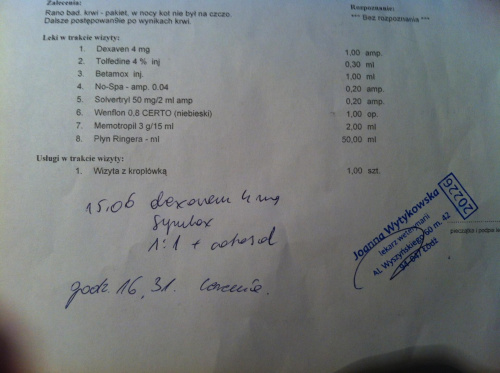 Zalecenia:
Rano bad. krwi - pakiet, w nocy kot nie był na czczo.
Dalsze postępowan9ie po wynikach krwi.
Rozpoznanie:
*** Bez rozpoznania ***
Leki w trakcie wizyty:
1. Dexaven 4 mg 1,00 amp.
2. Tolfedine 4 % inj 0,30 ml
3. Betamox inj. 1,00 ml
4. No-Spa - amp. 0.04 0,20 amp.
5. Solvertryl 50 mg/2 ml amp 0,20 amp.
6. Wenflon 0,8 CERTO (niebieski) 1,00 op.
7. Memotropil 3 g/15 ml 2,00 ml
8. Płyn Ringera - ml 50,00 ml
Usługi w trakcie wizyty:
1. Wizyta z kroplówką 1,00 szt.
15.06 dexavem 4 mg
1:1 +
godz. 16,
20226
Joanna Wytykowska
lekarz weterynarii
Al. Wyszyńskiego 60 m. 42
Łódź
pieczątka i podpis